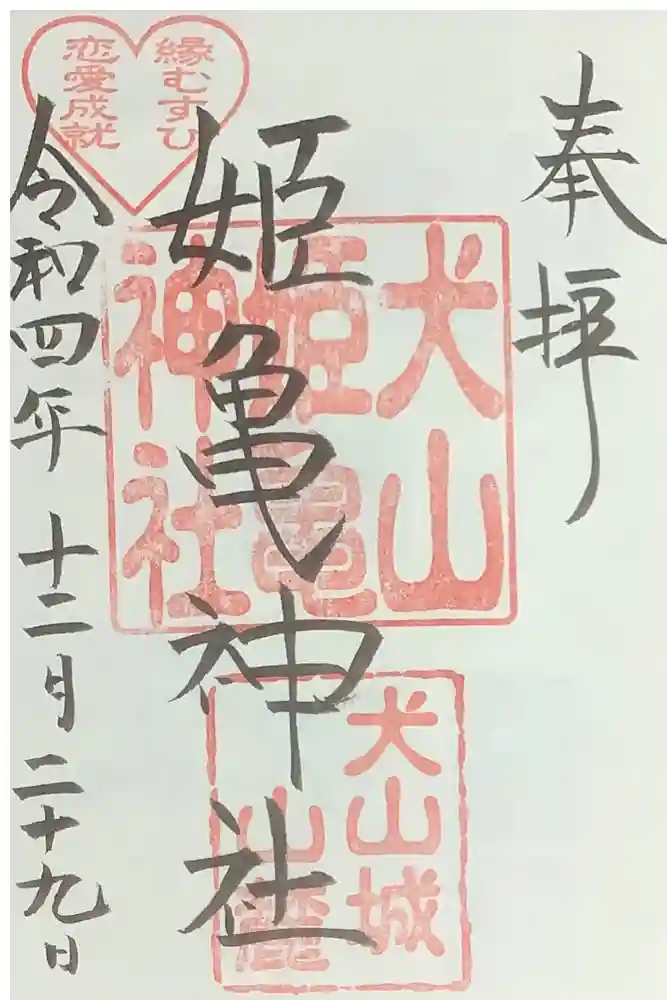 奉拝
犬山
姫亀
神社
姫亀神社
犬山城
山麓
縁むすひ
恋愛成就
令和四年十二月二十九日